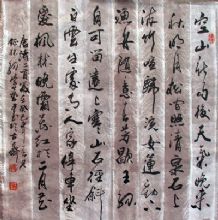 空山新雨後天氣晚來
秋明月松間照清泉石上
流竹喧歸浣女蓮動下
漁舟隨意春芳歇王孫
自可留遠上寒山石徑斜
白雲生處有人家停車坐
愛楓林晚霜葉紅於二月花
唐詩二首